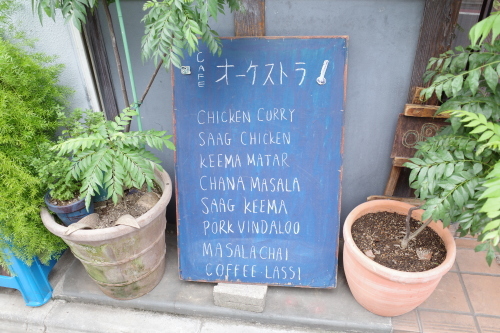 CAFE オーケストラ
CHICKEN CURRY
SAAG CHICKEN
KEEMA MATAR
CHANA MASALA
SAAG KEEMA
PORK VINDALOO
MASALA CHAI
COFFEE LASSI